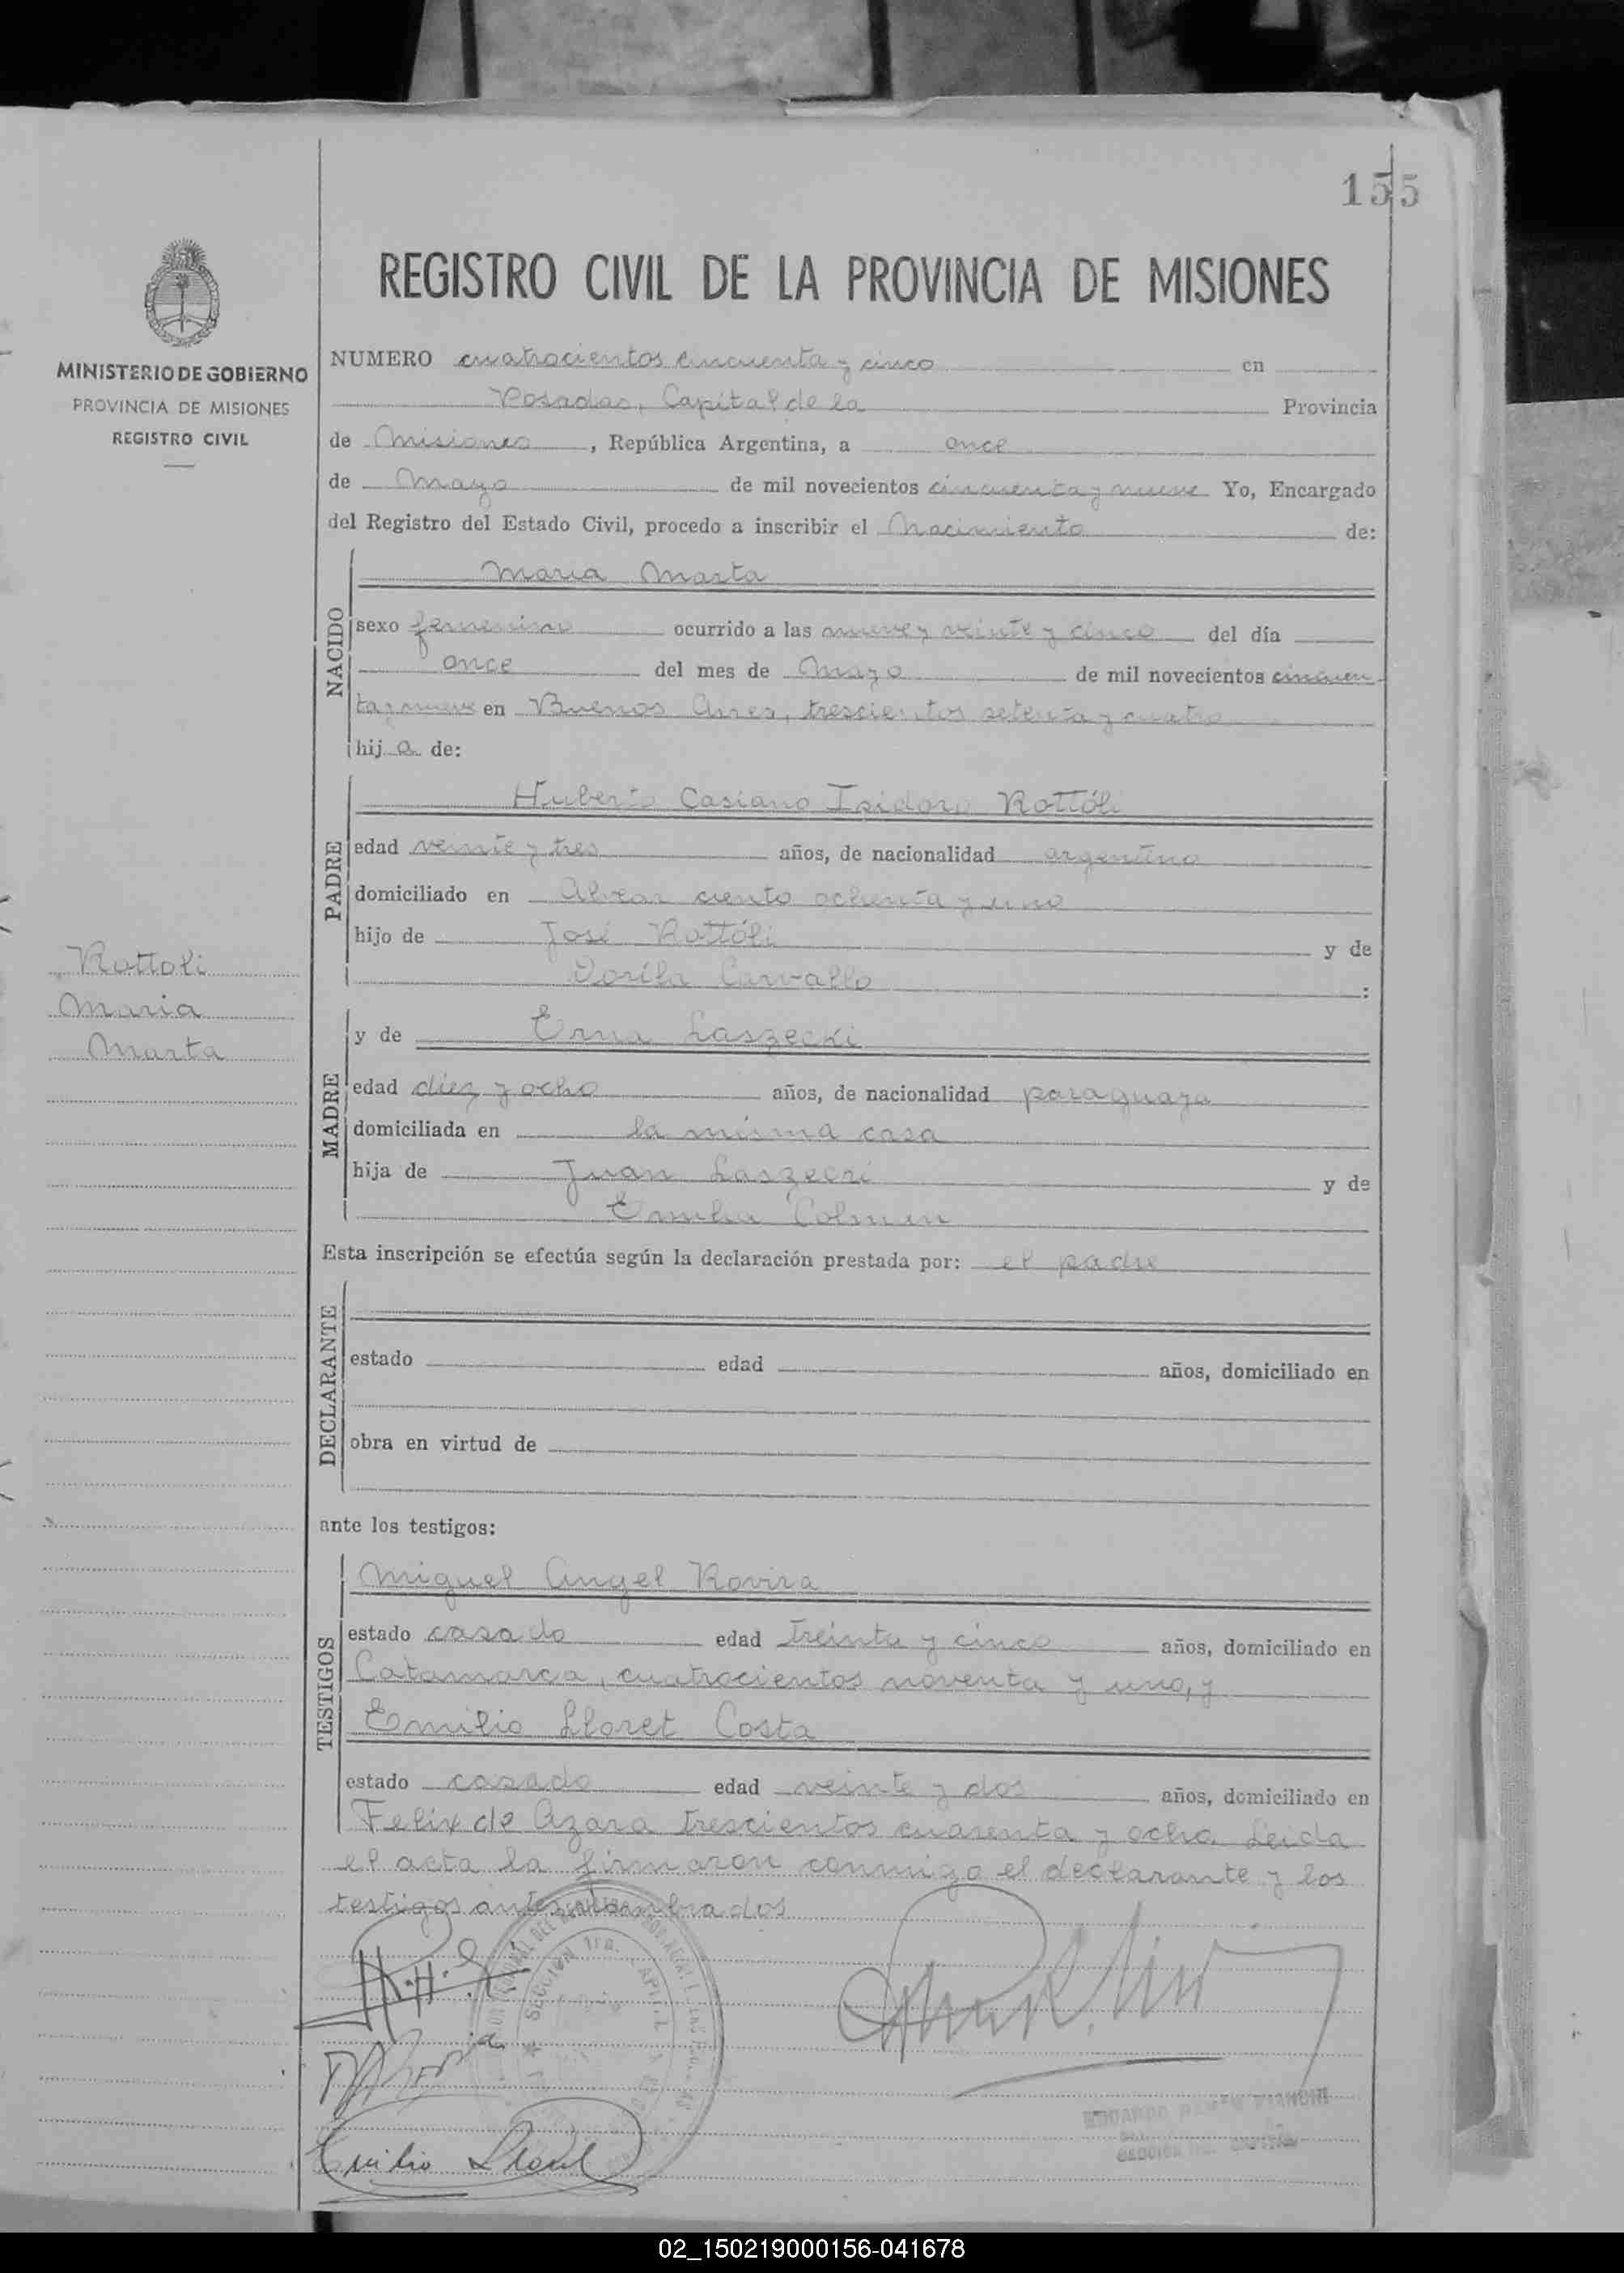 155
REGISTRO CIVIL DE LA PROVINCIA DE MISIONES
MINISTERIO DE GOBIERNO
PROVINCIA DE MISIONES
REGISTRO CIVIL
Rottoli
Maria
Marta
NUMERO cuatrocientos cincuenta y cinco en
Posadas, Capital de la Provincia
de Misiones, República Argentina, a once
de Mayo de mil novecientos cincuenta y nueve Yo, Encargado
del Registro del Estado Civil, procedo a inscribir el Nacimiento de:
NACIDO
Maria Marta
sexo femenino ocurrido a las nueve y veinte y cinco del día
once del mes de Mayo de mil novecientos cincuen
ta y nueve en Buenos Aires, trescientos setenta y cuatro
hij a de:
PADRE
Huberto Casiano Isidoro Rottóli
edad veinte y tres años, de nacionalidad argentino
domiciliado en Alvear ciento ochenta y uno
hijo de José Rottóli y de
Dorila Carvallo :
MADRE
y de Erna Laszecki
edad diez y ocho años, de nacionalidad paraguaya
domiciliada en la misma casa
hija de Juan Laszecki y de
Emilia Colman
Esta inscripción se efectúa según la declaración prestada por: el padre
DECLARANTE
estado edad años, domiciliado en
obra en virtud de
ante los testigos:
TESTIGOS
Miguel Angel Rovira
estado casado edad treinta y cinco años, domiciliado en
Catamarca, cuatrocientos noventa y uno, y
Emilio Lloret Costa
estado casado edad veinte y dos años, domiciliado en
Felix de Azara trescientos cuarenta y ocho. Leida
el acta la firmaron conmigo el declarante y los
testigos antes nombrados
SECCION 1ra. CAPITAL
Emilio Lloret
02_150219000156-041678